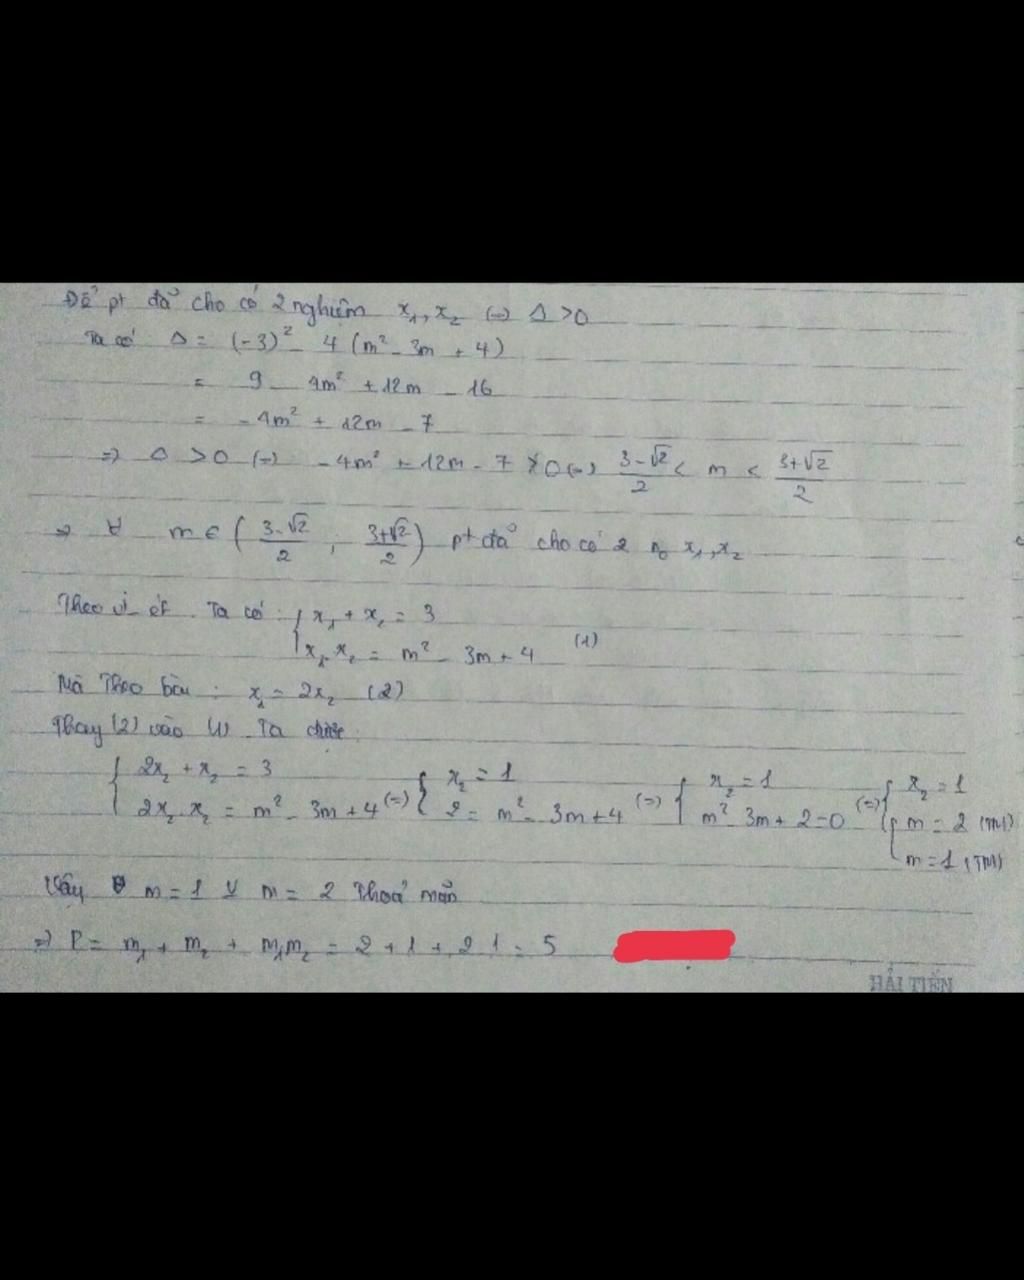 Để pt đã cho có 2 nghiệm x₁, x₂ (=) Δ > 0
Ta có Δ = (-3)² - 4 (m² - 3m + 4)
= 9 - 4m² + 12m - 16
= -4m² + 12m - 7
=> Δ > 0 (=) -4m² + 12m - 7 > 0 (=) (3-√2)/2 < m < (3+√2)/2
=> ∀ m ∈ ((3-√2)/2 ; (3+√2)/2) pt đã cho có 2 n₀ x₁, x₂
Theo vi ét. Ta có: { x₁ + x₂ = 3
x₁.x₂ = m² - 3m + 4 (1)
Mà Theo bài: x₁ = 2x₂ (2)
Thay (2) vào (1) Ta được:
{ 2x₂ + x₂ = 3
2x₂.x₂ = m² - 3m + 4 (=) { x₂ = 1
2 = m² - 3m + 4 (=) { x₂ = 1
m² - 3m + 2 = 0 (=) { x₂ = 1
[ m = 2 (TM)
m = 1 (TM)
Vậy m = 1 v m = 2 Thoả mãn
=> P = m₁ + m₂ + m₁m₂ = 2 + 1 + 2.1 = 5
HẢI TIẾN